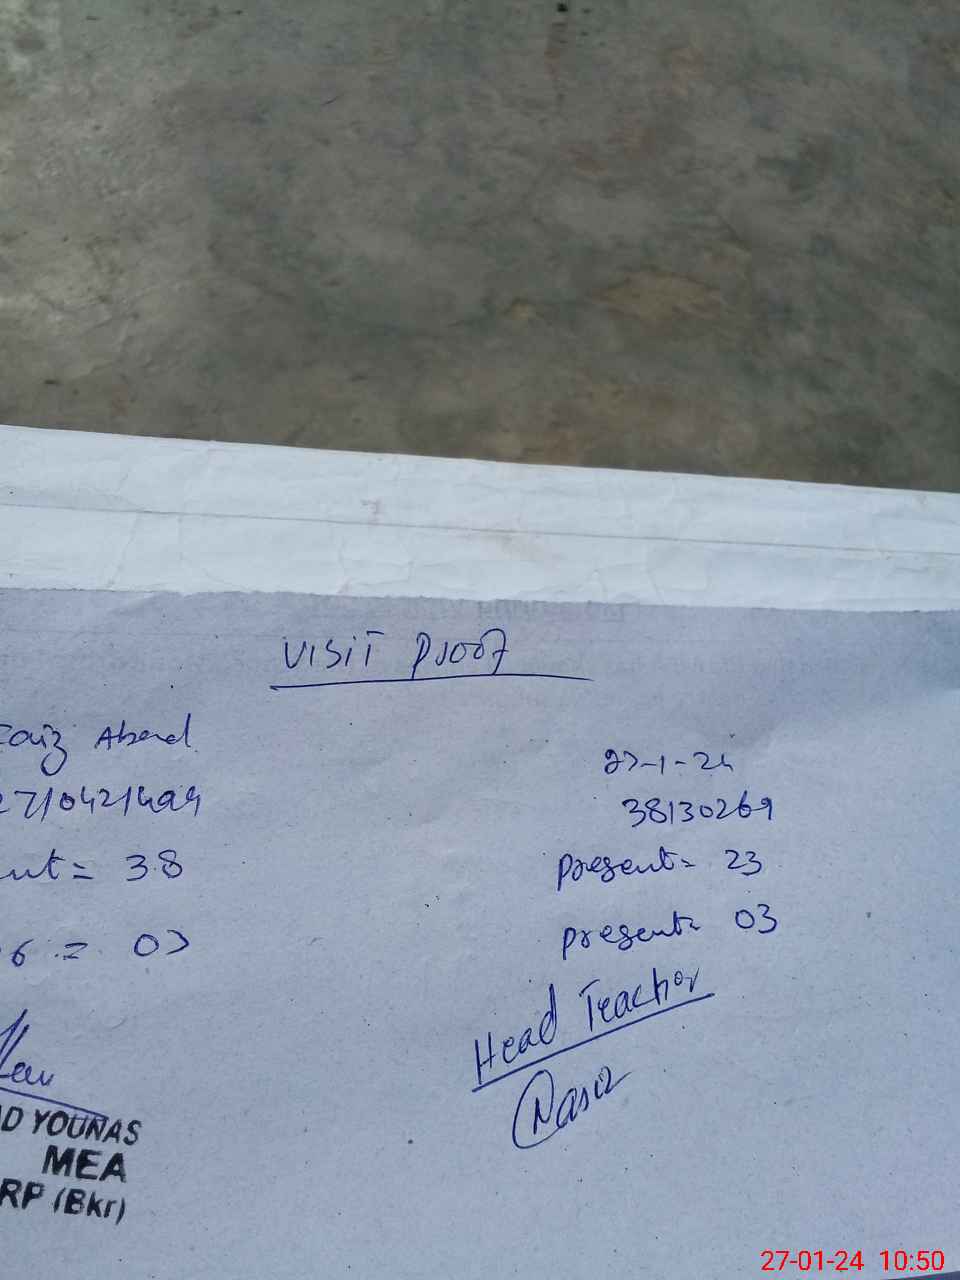 VISIT Proof
Faiz Abad
27-1-24
38130269
Present= 23
= 38
present= 03
6 = 03
Head Teacher
Nasir
D YOUNAS
MEA
RP (Bkr)
27-01-24 10:50